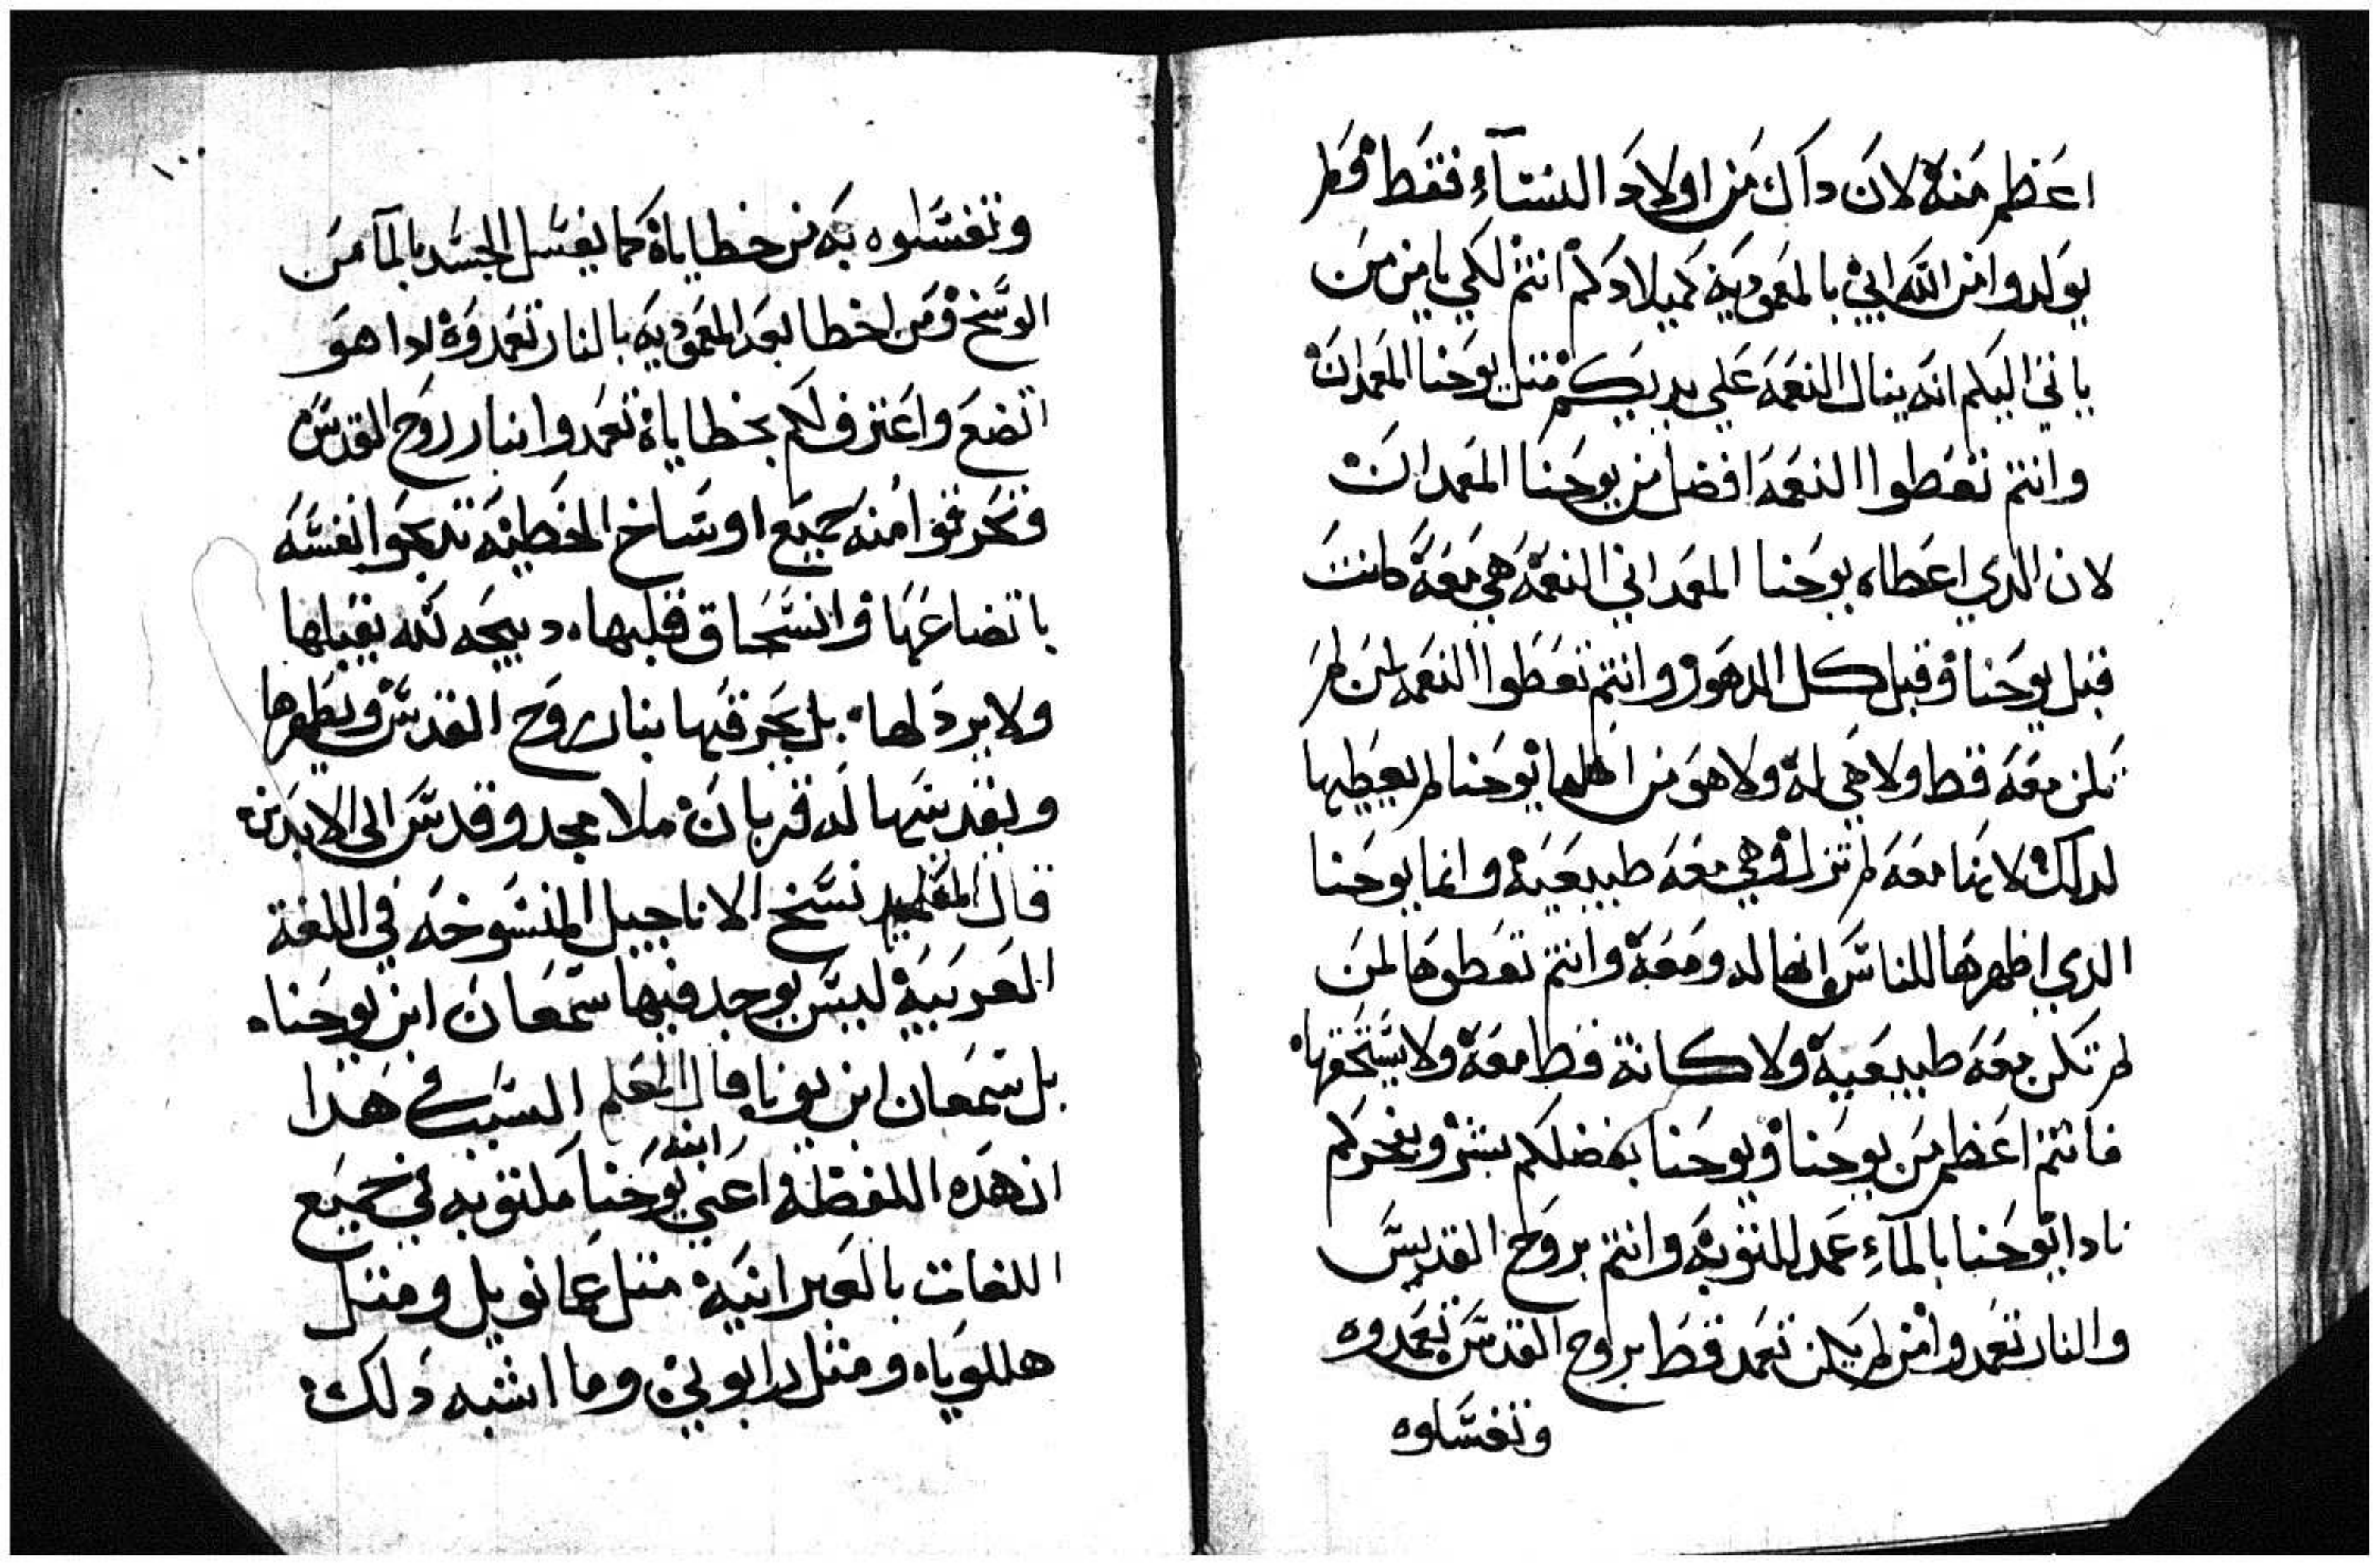 اعظم منه لان داك من اولاد النسآء فقط ولم
يولدوا من الله ابي بالمعموديه كميلادكم انتم لكي يامن من
ياتي اليكم انه ينال النعمه علي يديكم متل يوحنا المعمدان
وانتم تعطوا النعمه افضل من يوحنا المعمدان
لان الدي اعطاه يوحنا المعمداني النعمه هي معه كانت
قبل يوحنا وقبل كل الدهور وانتم تعطوا النعمه لمن لم
تكن معه قط ولا هي له ولا هو من اهلها يوحنا لم يعطيها
لدلك لانها معه لم تزل وهي معه طبيعيه وانما يوحنا
الدي اظهرها للناس انها له ومعه وانتم تعطوها لمن
لم تكن معه طبيعيه ولا كانة قط معه ولا يستحقها
فانتم اعظم من يوحنا ويوحنا بفضلكم بشر وبفخركم
نادا يوحنا بالمآء عمد للتوبه وانتم بروح القديس
والنار تعمدوا من لم يكن تعمد قط بروح القدس تعمدوه
وتغسلوه
وتغسلوه به من خطاياه كما يغسل الجسد بالمآ من
الوسخ ومن اخطا بعد المعموديه بالنار تعمدوه ادا هو
اتضع واعترف لكم بخطاياه تعمدوا بنار روح القدس
وتحرقوا منه جميع اوساخ الخطيه تدبحوا نفسه
باتضاعها وانسحاق قلبها، دبيحه لله يقبلها
ولا يرد لها. بل يحرقها بنار روح القدس ويطهرها
ويقدسها له قربان ملا مجد وقدس الى الابدين
قال التلميد نسخ الاناجيل المنسوخه في اللغة
العربية ليس يوجد فيها سمعان ابن يوحنا،
بل سمعان ابن يونا قال المعلم السبب في هدا
ابنه
ان هده اللفظه اعني يوحنا مكتوبه في جميع
اللغات بالعبرانيه متل عمانويل ومتل
هللوياه ومتل رابوني وما اشبه دلك
١٠٠